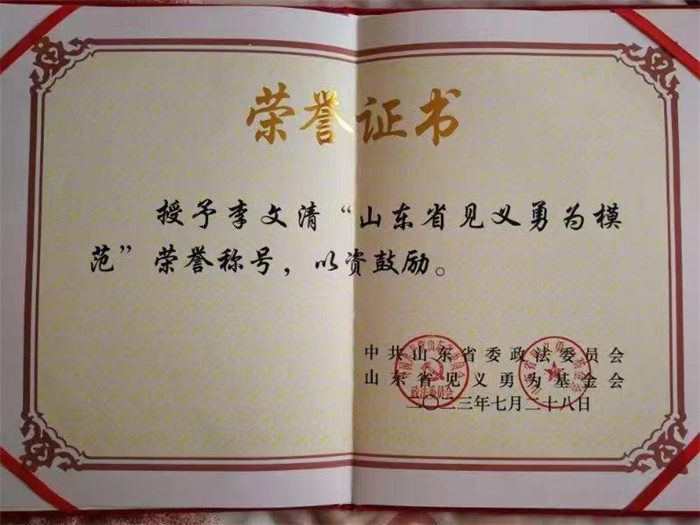 荣誉证书
授予李文清“山东省见义勇为模
范”荣誉称号，以资鼓励。
中共山东省委政法委员会
山东省见义勇为基金会
二〇二三年七月二十八日
政法委员会